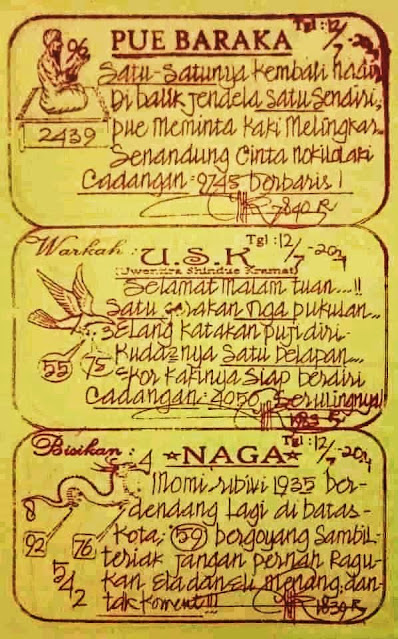 PUE BARAKA
Tgl : 12/7-2024
96
2439
Satu-satunya kembali hadir
Di balik jendela satu sendiri,
pue meminta kaki melingkar..
Senandung cinta nokilolaki
Cadangan : 9745 berbaris !
7840 R
Warkah : U.S.K
Tgl : 12/7-2024
(Uwentira Shindue Kramat)
Selamat malam tuan....!!
Satu gerakan tiga pukulan..
Elang katakan puji diri.
Kudaznya satu delapan...
Ekor kakinya siap berdiri
Cadangan : 4050
55
75
3
Bisikan : NAGA
Tgl : 12/7-2024
4
8
92
76
542
Momi rubivi 1935 ber-
dendang lagi di batas-
kota, 59 bergoyang sambil-
teriak jangan pernah ragu-
kan Ela dan Eli menang, dan-
tak koment !!!
1839 R